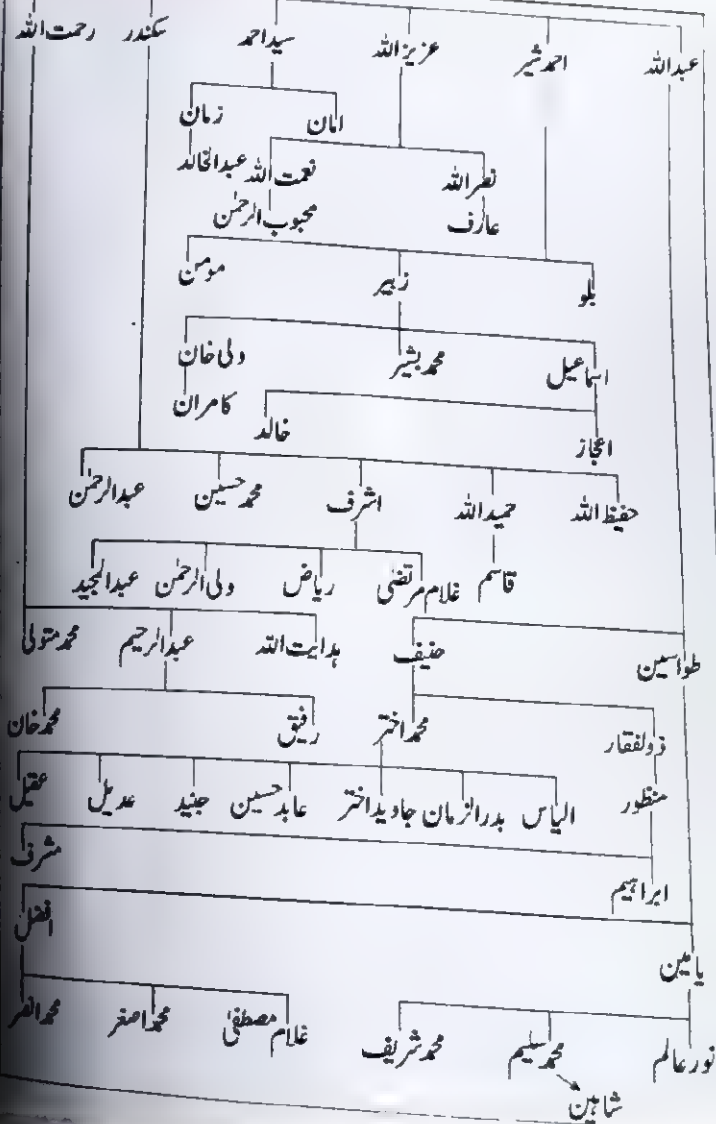 عبداللہ احمد شیر عزیز اللہ سید احمد سکندر رحمت اللہ
امان زمان
نصر اللہ نعمت اللہ عبدالخالد
عارف محبوب الرحمٰن
بلو زبیر مومن
اسماعیل محمد بشیر ولی خان
کامران
اعجاز خالد
حفیظ اللہ حمید اللہ اشرف محمد حسین عبدالرحمٰن
قاسم غلام مرتضیٰ ریاض ولی الرحمٰن عبدالمجید
طواسین حنیف ہدایت اللہ عبدالرحیم محمد متولی
ذولفقار محمد اختر رفیق محمد خان
منظور الیاس بدرالزمان جاوید اختر عابد حسین جنید عدیل عقیل
ابراہیم مشرف
یامین افضل
نور عالم محمد سلیم محمد شریف غلام مصطفیٰ محمد اصغر محمد انصر
شاہین